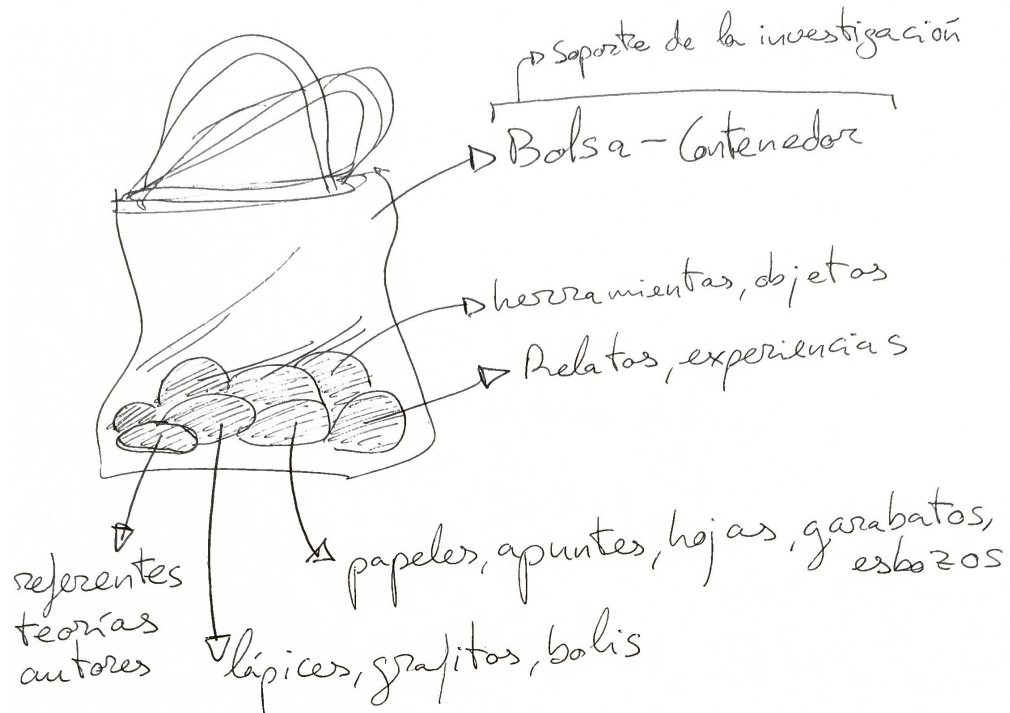 Soporte de la investigación
Bolsa - Contenedor
herramientas, objetos
Relatos, experiencias
papeles, apuntes, hojas, garabatos,
esbozos
referentes
teorías
autores
lápices, grafitos, bolis